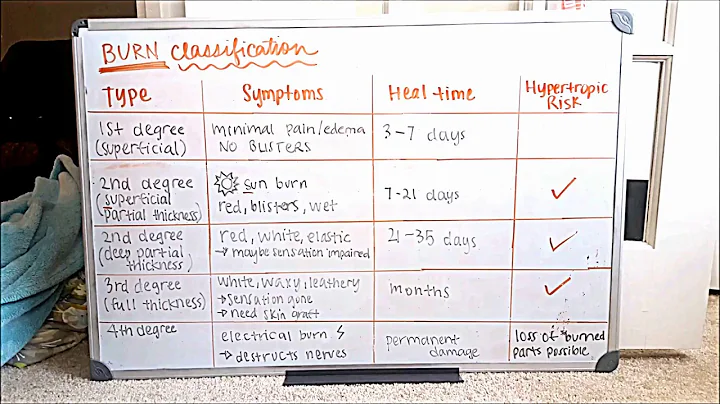 BURN classification
TYPE Symptoms Heal time Hypertropic Risk
1st degree (superficial)
minimal pain/edema
NO BLISTERS
3-7 days
2nd degree (superficial partial thickness)
sun burn
red, blisters, wet
7-21 days
✓
2nd degree (deep partial thickness)
red, white, elastic
→ maybe sensation impaired
21-35 days
✓
3rd degree (full thickness)
white, waxy, leathery
→ sensation gone
→ need skin graft
months
✓
4th degree
electrical burn
→ destructs nerves
permanent damage
loss of burned parts possible